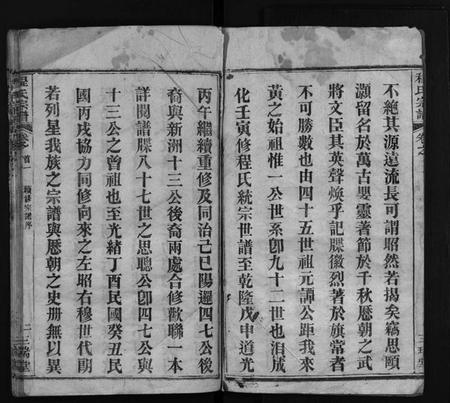 程氏宗譜
卷之
不絕其源遠流長可謂昭然若揭矣竊思頤
灝留名於萬古嬰靈著節於千秋歷朝之武
將文臣其英聲煥乎記牒徽烈著於旗常者
不可勝數也由四十五世祖元譚公距我來
黃之始祖惟一公世系卽九十二世也洎成
化壬寅修程氏統宗世譜至乾隆戊申道光
丙午繼續重修及同治己巳陽邏四七公後
裔與新洲十三公後裔兩處合修歡聯一本
詳閱譜牒八十七世之思聰公卽四七公與
十三公之曾祖也至光緒丁酉民國癸丑民
國丙戌協力同修向來之左昭右穆世代明
若列星我族之宗譜與歷朝之史册無以異
程氏宗譜
卷之
首一
續修宗譜序
二三瑞堂